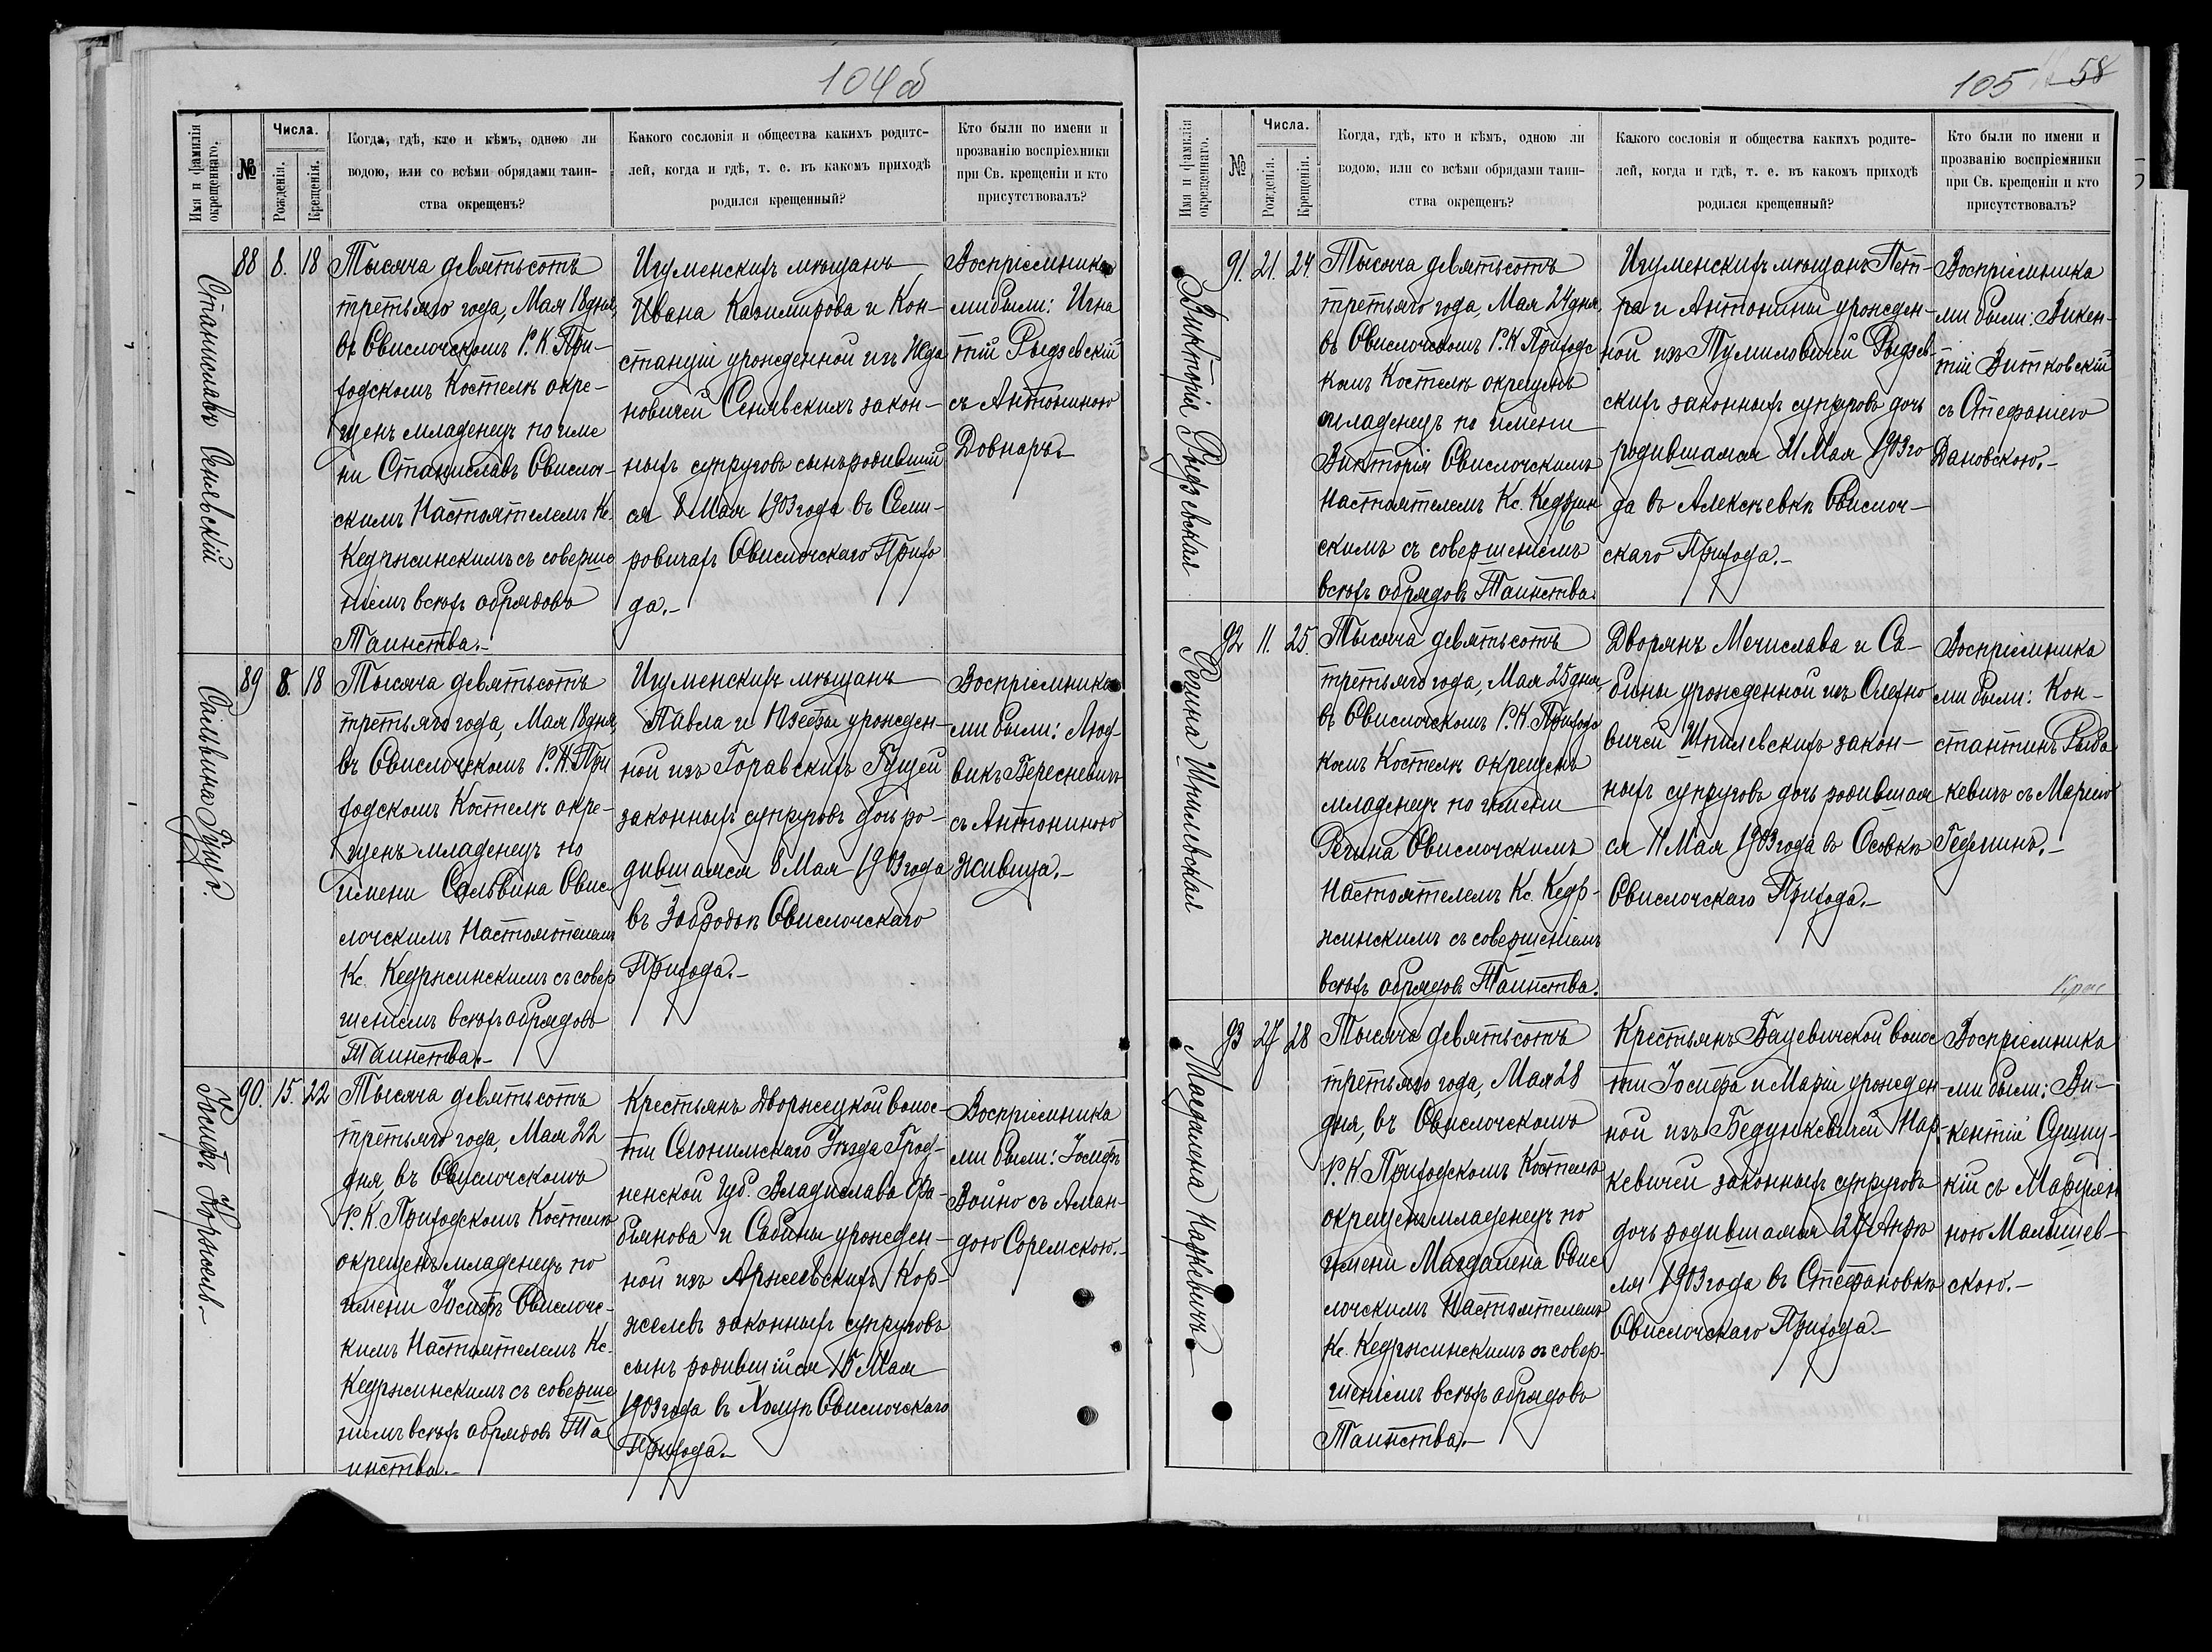 104об
Имя и фамилія окрещеннаго.
№
Числа.
Рожденія.
Крещенія.
Когда, гдѣ, кто и кѣмъ, одною ли
водою, или со всѣми обрядами таин-
ства окрещенъ?
Какого сословія и общества какихъ родите-
лей, когда и гдѣ, т. е. въ какомъ приходѣ
родился крещенный?
Кто были по имени и
прозванію воспріемники
при Св. крещеніи и кто
присутствовалъ?
Станиславъ Сенявскій
88
8.
18
Тысяча девятьсотъ
третьяго года, Мая 18 дня,
въ Свислочскомъ Р. К. При-
ходскомъ Костелѣ окре-
щенъ младенецъ по име
ни Станиславъ Свислоч-
скимъ Настоятелемъ Кс.
Кедржинскимъ съ соверше
ніемъ всѣхъ обрядовъ
Таинства.-
Игуменскихъ мѣщанъ
Ивана Казимирова и Кон-
станціи урожденной изъ Жда
новичей Сенявскихъ закон-
ныхъ супруговъ сынъ родивший
ся 8 Мая 1903 года въ Семи-
ровичахъ Свислочскаго Прихо
да.-
Воспріемника
ми были: Игна
тій Рыдзевскій
съ Антониною
Довнаръ.
Сальвина Гущо.
89
8.
18
Тысяча девятьсотъ
третьяго года, Мая 18 дня,
въ Свислочскомъ Р. К. При
ходскомъ Костелѣ окре-
щенъ младенецъ по
имени Сальвина Свис
лочскимъ Настоятелемъ
Кс. Кедржинскимъ съ совер
шеніемъ всѣхъ обрядовъ
Таинства.-
Игуменскихъ мѣщанъ
Павла и Юзефы урожден-
ной изъ Горавскихъ Гущей
законныхъ супруговъ дочь ро-
дившаяся 8 Мая 1903 года
въ Забродьѣ Свислочскаго
Прихода.-
Воспріемника
ми были: Люд-
викъ Бересневичъ
съ Антониною
Живица.-
Іосифъ Коржель-
90.
15.
22
Тысяча девятьсотъ
третьяго года, Мая 22
дня, въ Свислочскомъ
Р. К. Приходскомъ Костелѣ
окрещенъ младенецъ по
имени Іосифъ Свислочс-
кимъ Настоятелемъ Кс.
Кедржинскимъ съ соверше
ніемъ всѣхъ обрядовъ Та
инства.-
Крестьянъ Дворжецкой волос-
ти Слонимскаго Уѣзда Грод-
ненской Губ. Владислава Фа-
біянова и Сабины урожден-
ной изъ Аржевскихъ Кор-
желевъ законныхъ супруговъ
сынъ родившійся 15 Мая
1903 года въ Холуѣ Свислочскаго
Прихода.-
Воспріемника
ми были: Іосифъ
Войно съ Аман-
дою Соремскою.-
105 58
Имя и фамилія окрещеннаго.
№
Числа.
Рожденія.
Крещенія.
Когда, гдѣ, кто и кѣмъ, одною ли
водою, или со всѣми обрядами таин-
ства окрещенъ?
Какого сословія и общества какихъ родите-
лей, когда и гдѣ, т. е. въ какомъ приходѣ
родился крещенный?
Кто были по имени и
прозванію воспріемники
при Св. крещеніи и кто
присутствовалъ?
Викторія Рыдзевская
91.
21.
24
Тысяча девятьсотъ
третьяго года, Мая 24 дня,
въ Свислочскомъ Р. К. Приходс
комъ Костелѣ окрещенъ
младенецъ по имени
Викторія Свислочскимъ
Настоятелемъ Кс. Кедржин
скимъ съ совершеніемъ
всѣхъ обрядовъ Таинства.
Игуменскихъ мѣщанъ Пет-
ра и Антонины урожден-
ной изъ Тумиловичей Рыдзев-
скихъ законныхъ супруговъ дочь
родившаяся 21 Мая 1903 го
да въ Алексѣевкѣ Свислоч-
скаго Прихода.-
Воспріемника
ми были: Викен-
тій Витковскій
съ Стефаніею
Дановскою.-
Регина Шпилевская
92
11.
25.
Тысяча девятьсотъ
третьяго года, Мая 25 дня,
въ Свислочскомъ Р. К. Приходс
комъ Костелѣ окрещенъ
младенецъ по имени
Регина Свислочскимъ
Настоятелемъ Кс. Кедр-
жинскимъ съ совершеніемъ
всѣхъ обрядовъ Таинства.
Дворянъ Мечислава и Са-
бины урожденной изъ Олехно
вичей Шпилевскихъ закон-
ныхъ супруговъ дочь родившая
ся 11 Мая 1903 года въ Осовкѣ
Свислочскаго Прихода.-
Воспріемника
ми были: Кон-
стантинъ Рыба
кевичъ съ Маріею
Гедминъ.-
Магдалена Наркевичъ-
93
27
28
Тысяча девятьсотъ
третьяго года, Мая 28
дня, въ Свислочскомъ
Р. К. Приходскомъ Костелѣ
окрещенъ младенецъ по
имени Магдалена Свис
лочскимъ Настоятелемъ
Кс. Кедржинскимъ съ совер-
шеніемъ всѣхъ обрядовъ
Таинства.-
Крестьянъ Бацевичской волос
ти Іосифа и Маріи урожден
ной изъ Бедункевичей Нар-
кевичей законныхъ супруговъ
дочь родившаяся 27 Апрѣ
ля 1903 года въ Стефановкѣ
Свислочскаго Прихода.-
Воспріемника
ми были: Ви-
кентій Сушиц-
кій съ Марціян
ною Малышев-
скою.-